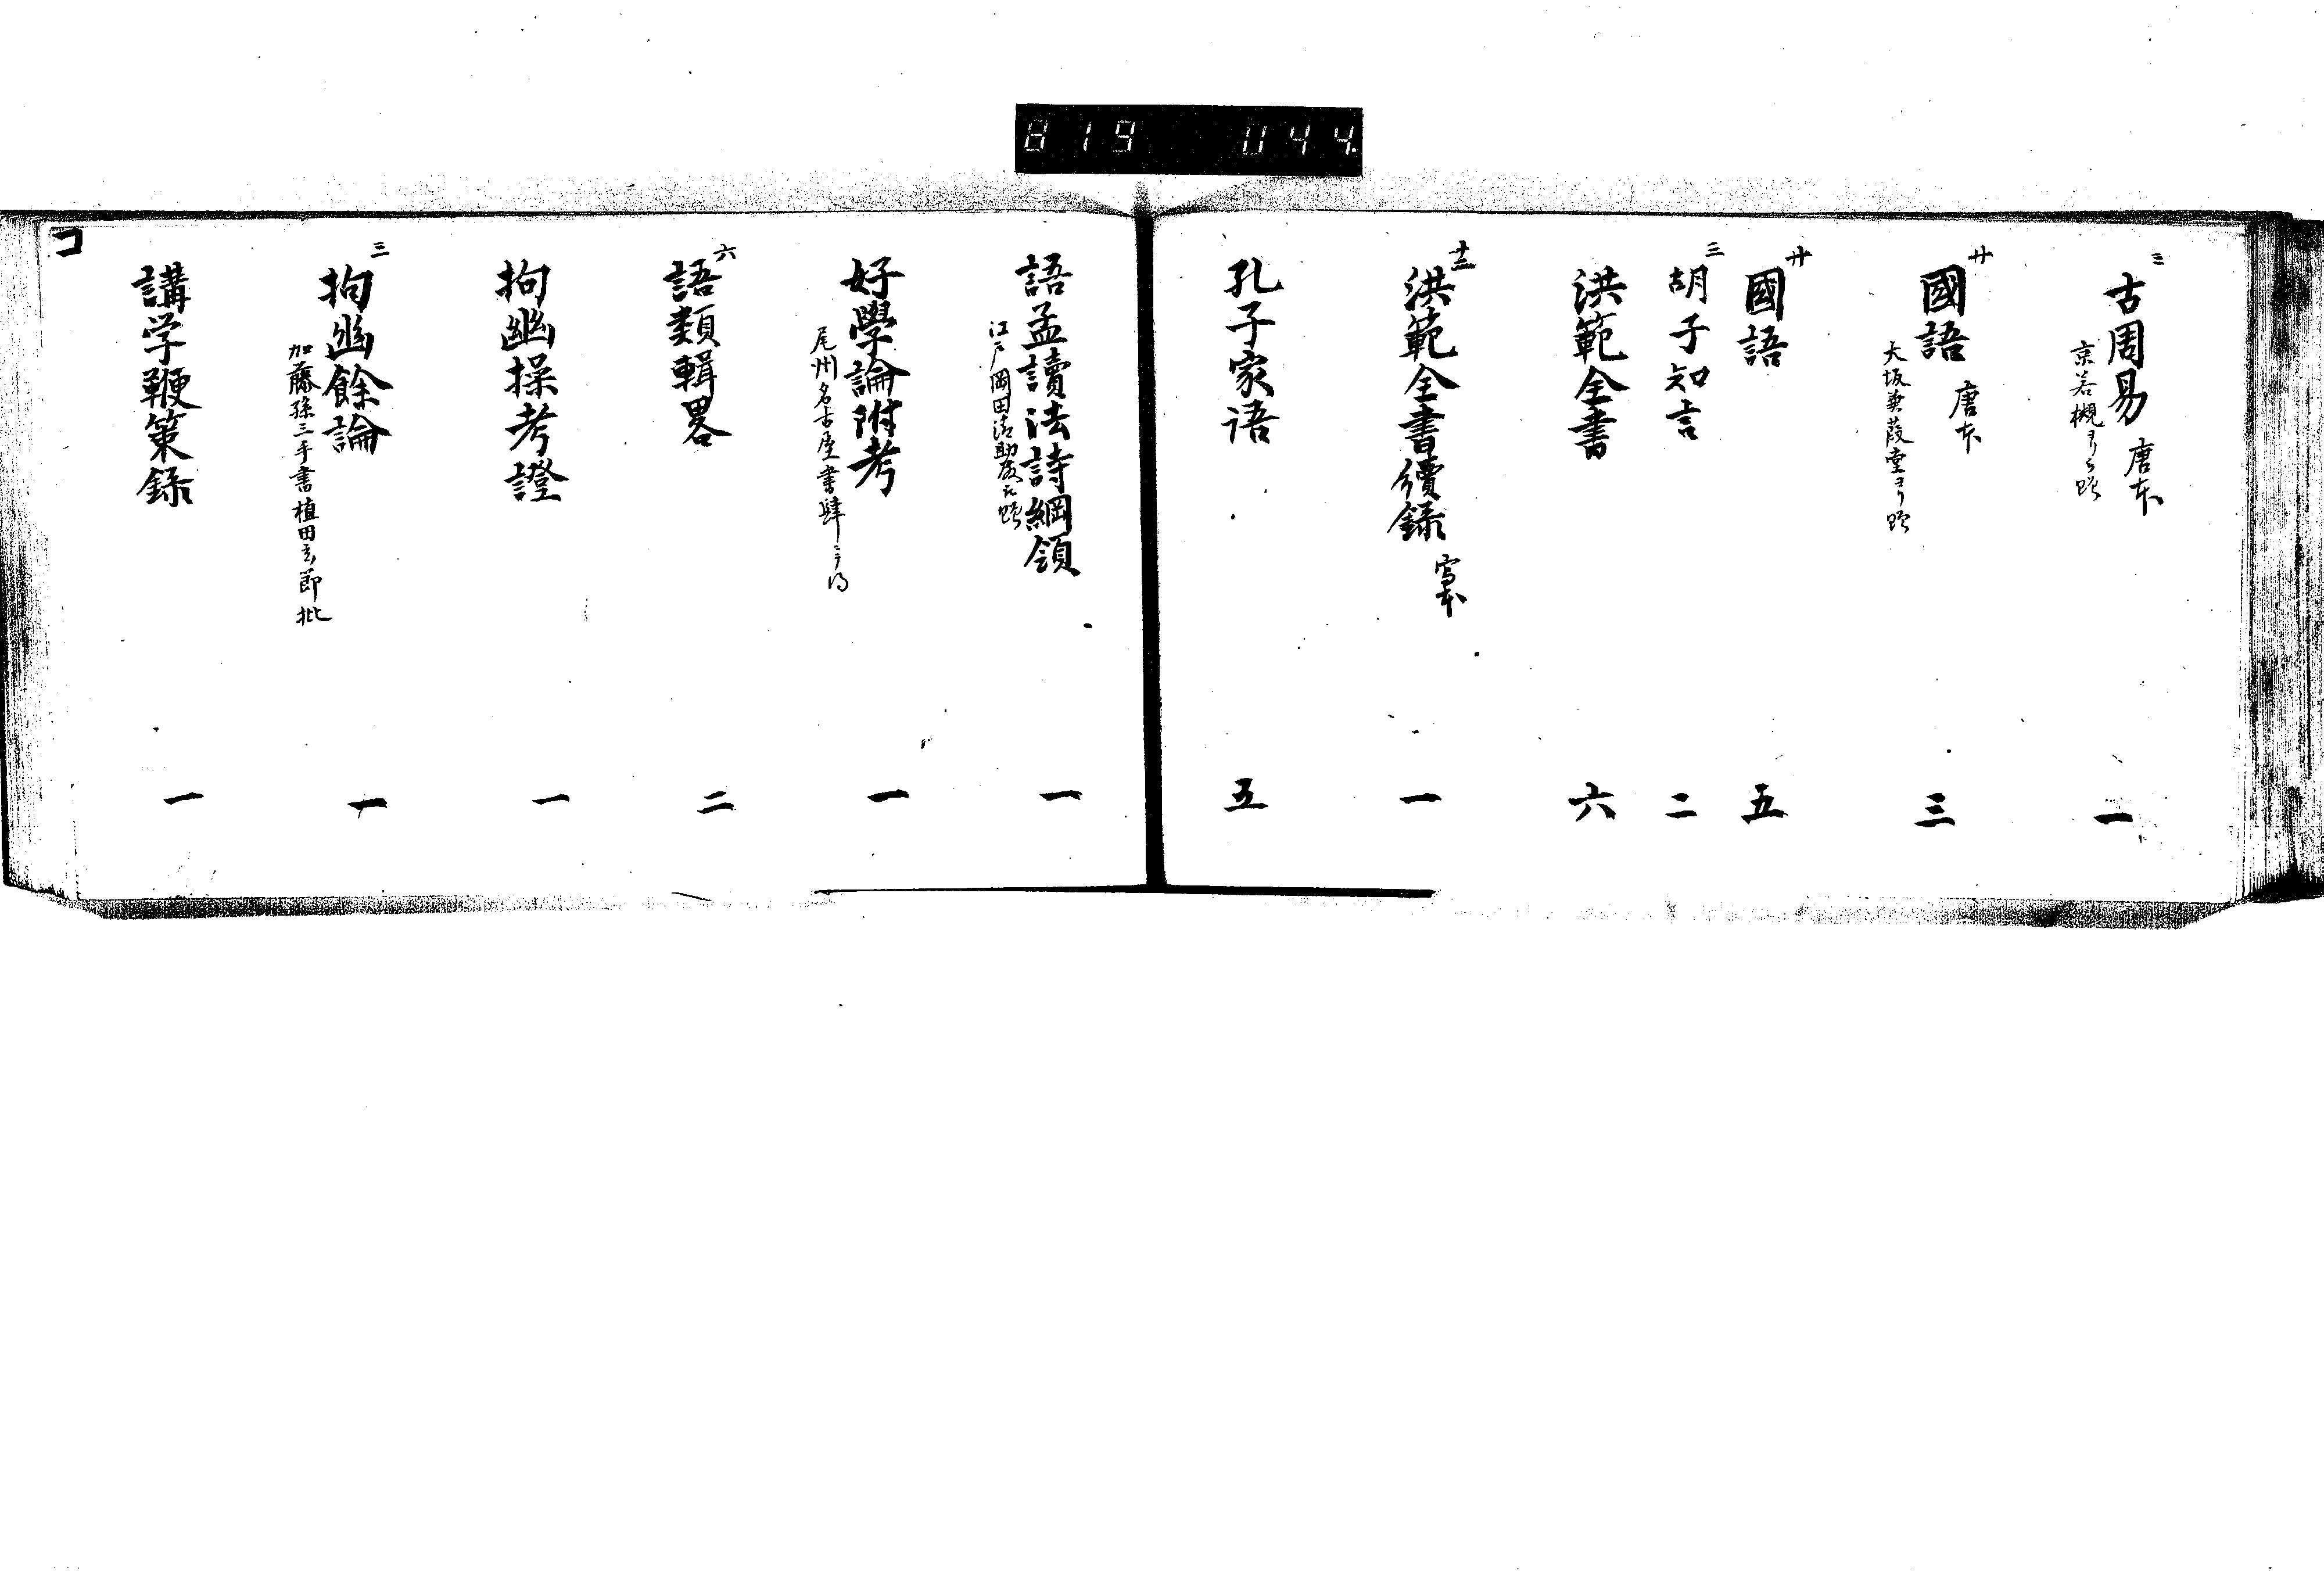 819 044
三
古周易 唐本 一
京若槻ヨリ贈
廿
國語 唐本 三
大坂蒹葭堂ヨリ贈
廿
國語 五
三
胡子知言 二
洪範全書 六
洪範全書續録 寫本 一
孔子家语 五
語孟讀法詩綱領 一
江戸岡田清助
好學論附考 一
尾州名古屋書肆ニテ得
六
語類輯畧 二
拘幽操考證 一
三
拘幽餘論 一
加藤孫三手書植田玄節批
講学鞭策録 一
コ